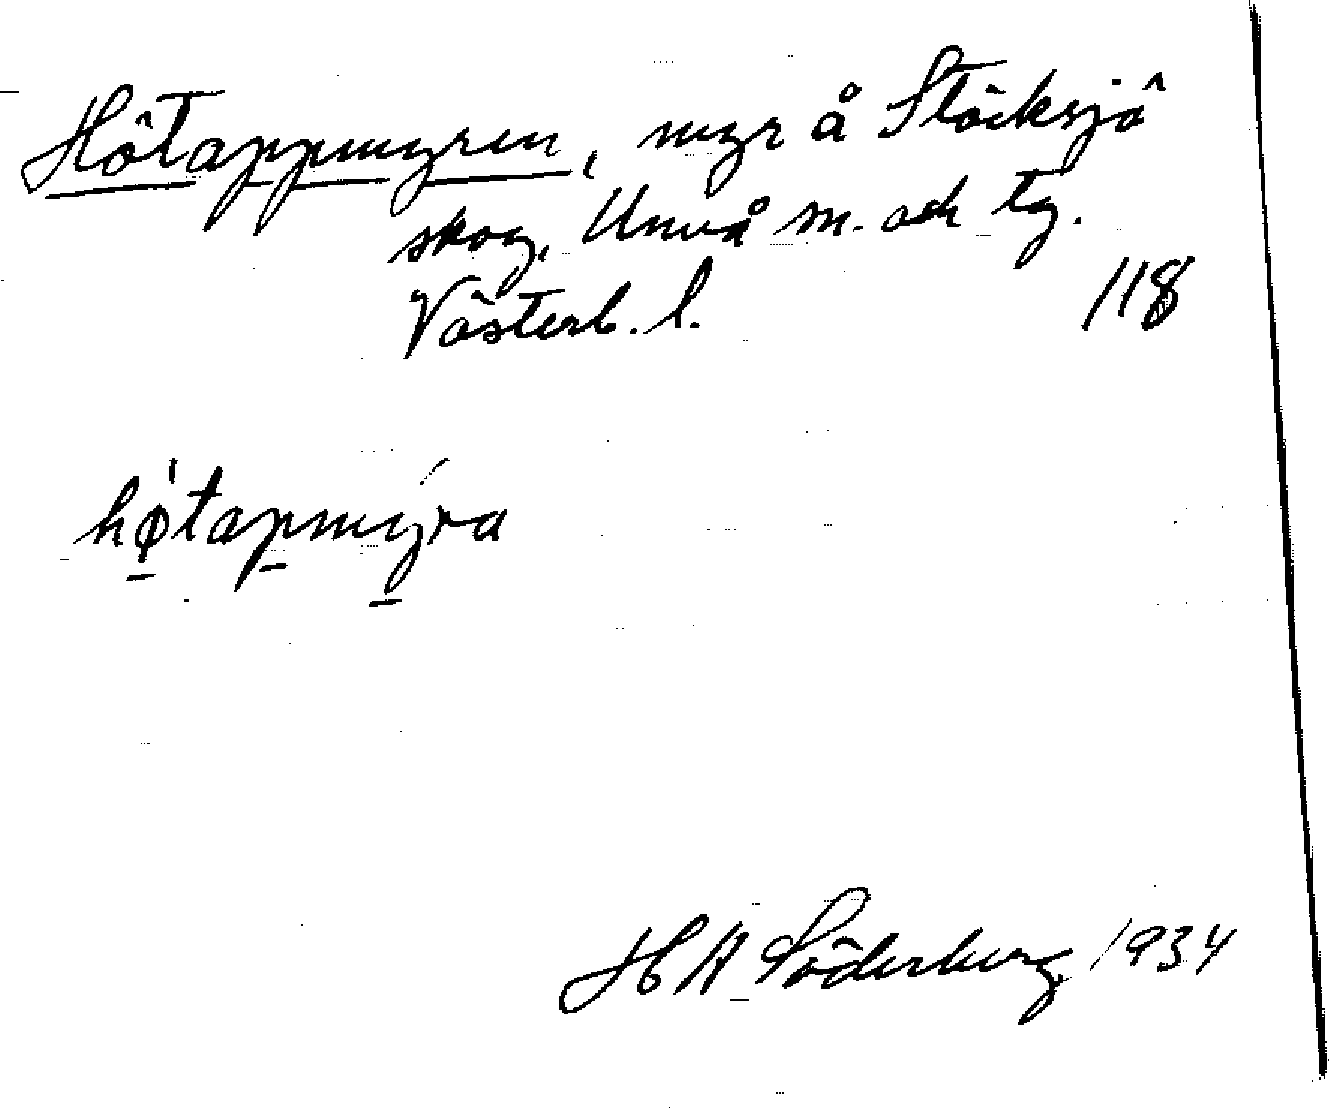 Hötappmyren, myr å Stöcksjö
skog, Umeå m. och tg.
Västerb. l. 118
hø̠'tap̠mý̠ra
H A Söderberg 1934